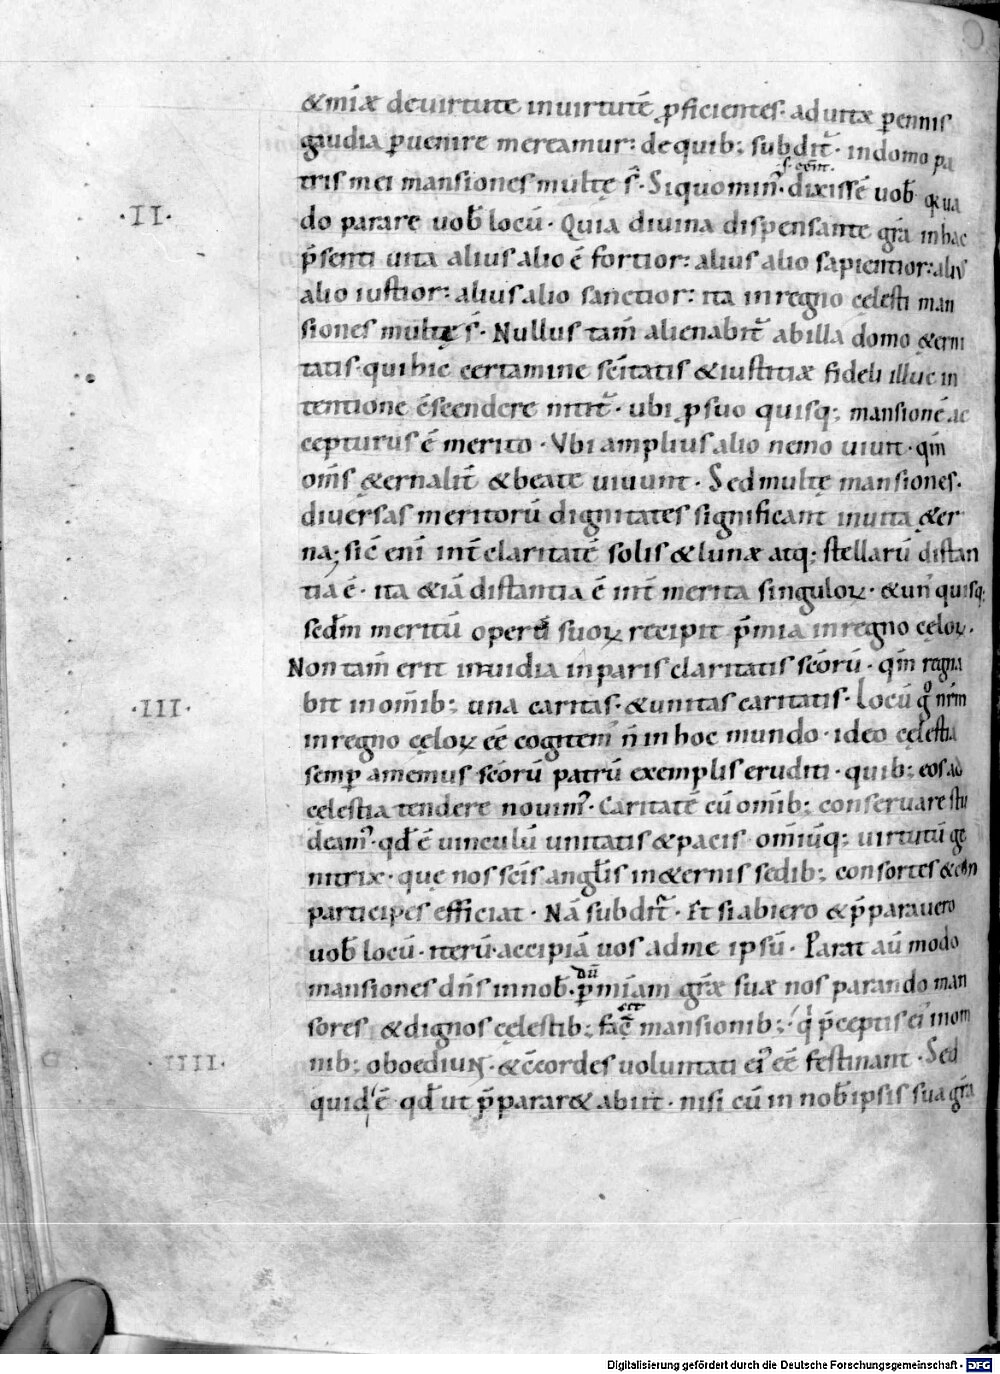 &miæ deuirtute inuirtutē ꝓficientes· aduitæ ꝑennis
gaudia ꝑuenire mereamur: dequib; subdit̄· indomo pa
tris mei mansiones multę s̄· Siquomin᷒· dixissē uob̄ quia ua
·II· do parare uob̄ locū· Quia diuina dispensante gr̄a inhac
p̄senti uita alius alio ē fortior: alius alio sapientior: alius
alio iustior: alius alio sanctior: ita inregno cęlesti man
siones multę s̄· Nullus tam̄ alienabit̄ abilla domo &erni
tatis· quihic certamine sc̄itatis &iustitiæ fideli illuc in
tentione c̄scendere nitit̄· ubi ꝓsuo quisq; mansionē ac
cepturus ē merito· Vbi amplius alio nemo uiuit· qm̄
om̄s &ernalit̄ &beate uiuunt· Sed multę mansiones·
diuersas meritorū dignitates significant inuita &er
na; sic̄ eni̅ int̄ claritatē solis &lunæ atq; stellarū distan
tia ē· ita &iā distantia ē int̄ merita singuloꝝ· &un᷒quisq;
sed̄m meritū operū suoꝝ recipit p̄mia inregno cęloꝝ·
Non tam̄ erit inuidia inparis claritatis sc̄orū· qm̄ regna
·III· bit inom̄ib; una caritas· &unitas caritatis· Locū g̊ nr̄m
inregno cęloꝝ ēē cogitem᷒ n̄ in hoc mundo· ideo cęlestia
semꝑ amemus sc̄orū patrū exemplis eruditi· quib; eos ad
cęlestia tendere nouim᷒· Caritatē cū om̄ib; conseruare stu
deam᷒· qđ ē uinculū unitatis &pacis· om̄iūq; uirtutū ge
nitrix· quę nos sc̄is angl̄is in&ernis sedib; consortes &con
participes efficiat· Nā subdit̄· Et siabiero &p̄parauero
uob̄ locū· iterū· accipiā uos adme ipsū· Parat aū modo
mansiones dn̄s innob̄· ꝑmīam gr̄æ suæ nos parando man
sores &dignos cęlestib; mansionib; p̄ceptis ei᷒ inom
·IIII· nib; oboediun̄t· &c̄cordes uoluntati ei᷒ ēē festinant· Sed
quid ē qđ ut p̄parar& abiit· nisi cū in nob̄ipsis sua gr̄a
Digitalisierung gefördert durch die Deutsche Forschungsgemeinschaft - DFG